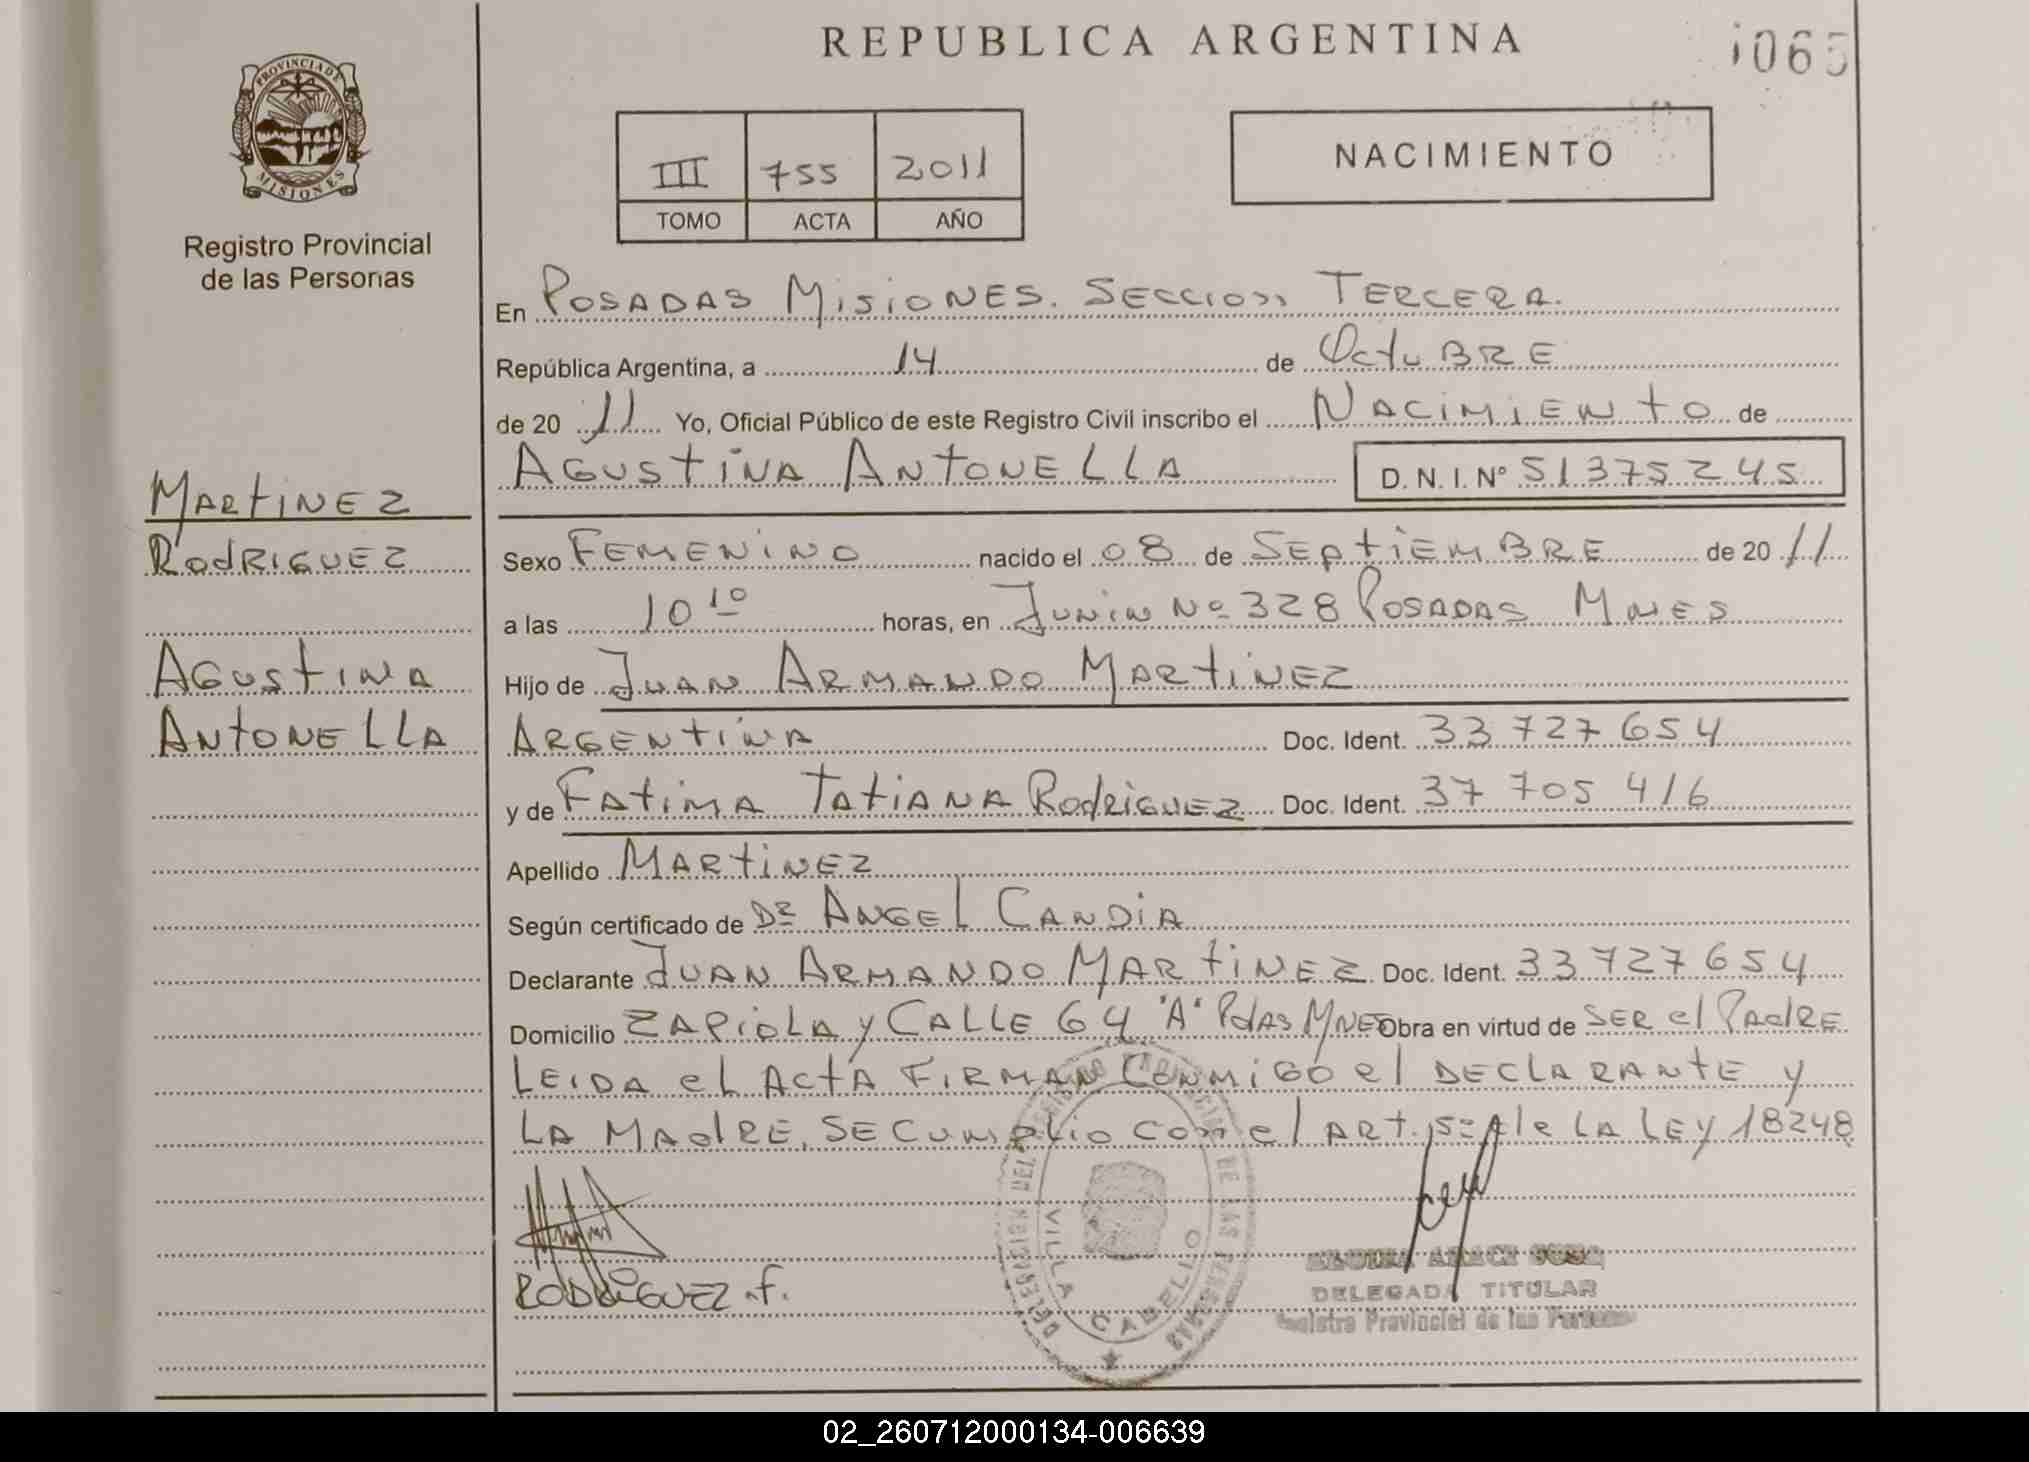 REPUBLICA ARGENTINA
065
PROVINCIA DE
MISIONES
Registro Provincial
de las Personas
III 755 2011
TOMO ACTA AÑO
NACIMIENTO
En POSADAS MISIONES. SECCION TERCERA.
República Argentina, a 14 de OctuBRE
de 20 11 Yo, Oficial Público de este Registro Civil inscribo el NACIMIENtO de
AGUStINA ANtONELLA D. N. I. Nº 51375245
MARtINEZ
RodRIGUEZ
AGUStINA
ANtONELLA
Sexo FEMENINO nacido el 08 de SEPtIEMBRE de 20 11
a las 10 10 horas, en JUNIN Nº 328 POSADAS MNES
Hijo de JUAN ARMANDO MARtINEZ
ARGENtINA Doc. Ident. 33 727 654
y de FAtIMA TAtIANA RodRIGUEZ Doc. Ident. 37 705 416
Apellido MARtINEZ
Según certificado de DR ANGEL CANDIA
Declarante JUAN ARMANDO MARtINEZ Doc. Ident. 33 727 654
Domicilio ZAPIOLA y CALLE 64 "A" PdAS MNES Obra en virtud de SER el PAdRE
LEIDA el ActA FIRMAN CONMIGO el DECLARANtE y
LA MAdRE, SE CUMPLIO CON el ARt. de LA LEY 18248
RODRIGUEZ F.
VILLA CABELLO
DELEGADA TITULAR
Registro Provincial de las Personas
02_260712000134-006639